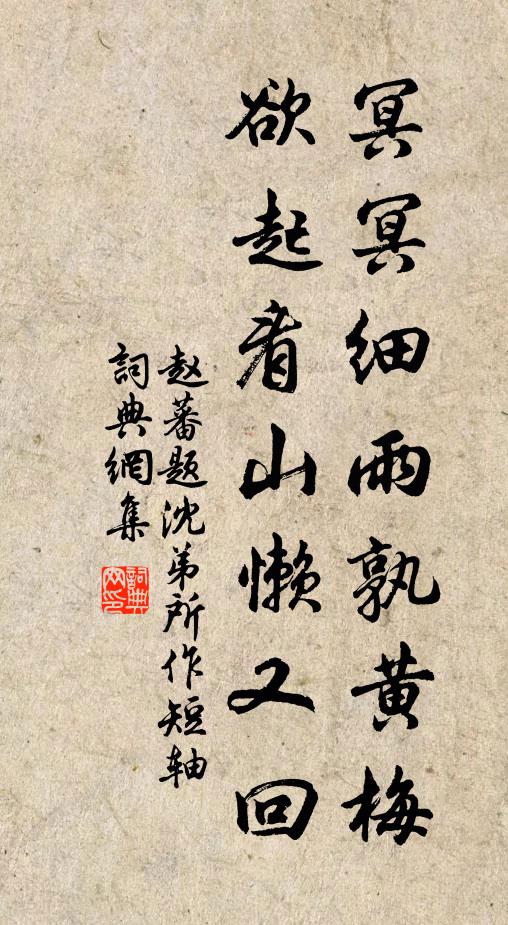 冥冥細雨孰黄梅
欲起看山懶又回
赵蕃题沈弟所作短轴
詞典網集
詞典
网印